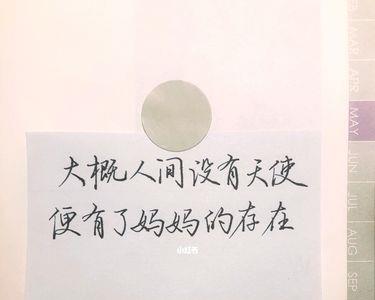 大概人间没有天使
便有了妈妈的存在
小红书
MAR
APR
MAY
JUN
JUL
AUG
SEP